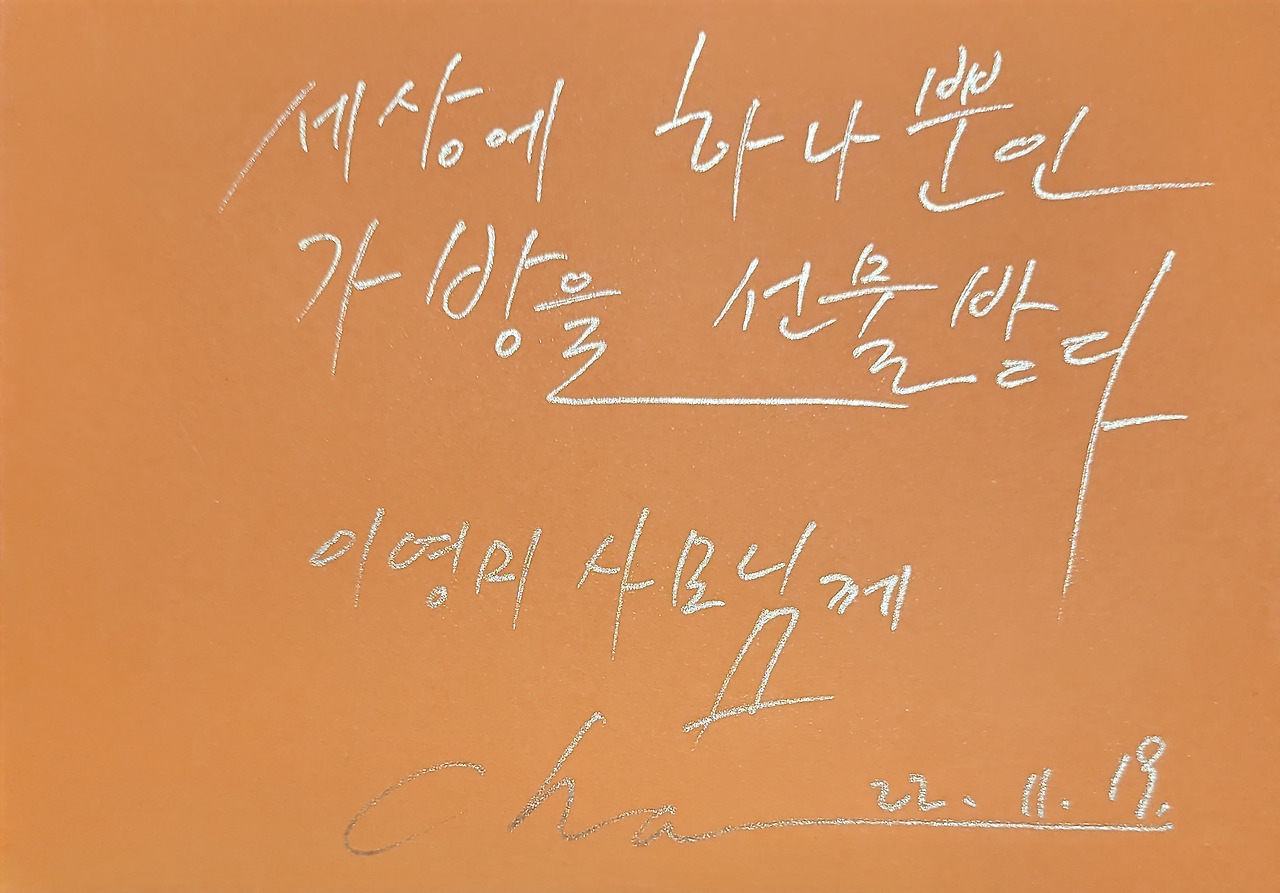 세상에 하나뿐인
가방을 선물받다
이영미 사모님께
Cha 22. 11. 19.